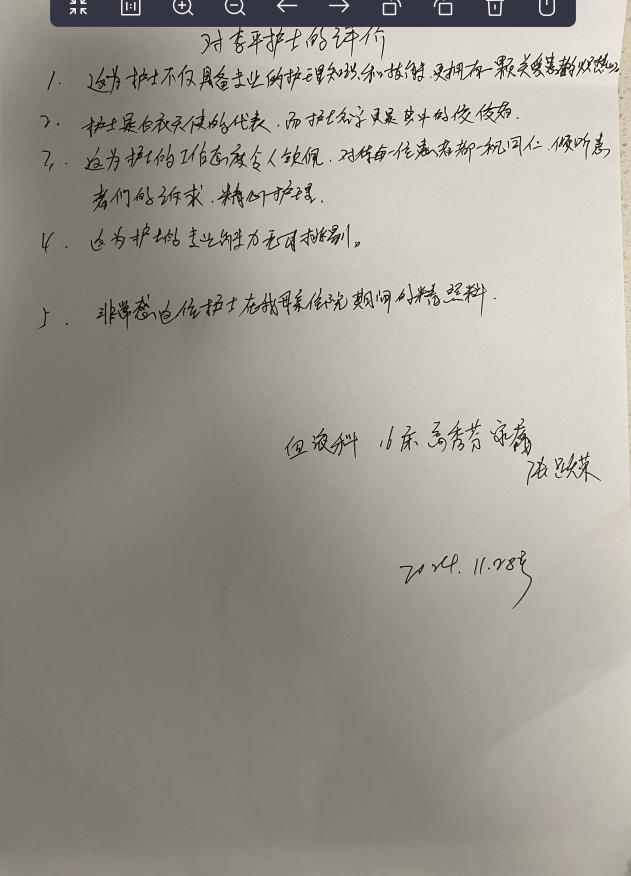 对李平护士的评价
1. 这为护士不仅具备专业的护理知识和技能.更拥有一颗关爱患者的炽热心
2. 护士是白衣天使的代表.而护士 更是其中的佼佼者.
3. 这为护士的工作态度令人钦佩.对待每一位患者都一视同仁.倾听患
者们的诉求.精心护理.
4. 这为护士的专业能力无可挑剔。
5. 非常感 这位护士在我母亲住院期间的精 照料.
血液科 16床 高秀芳 家属
张 荣
2024.11.28号